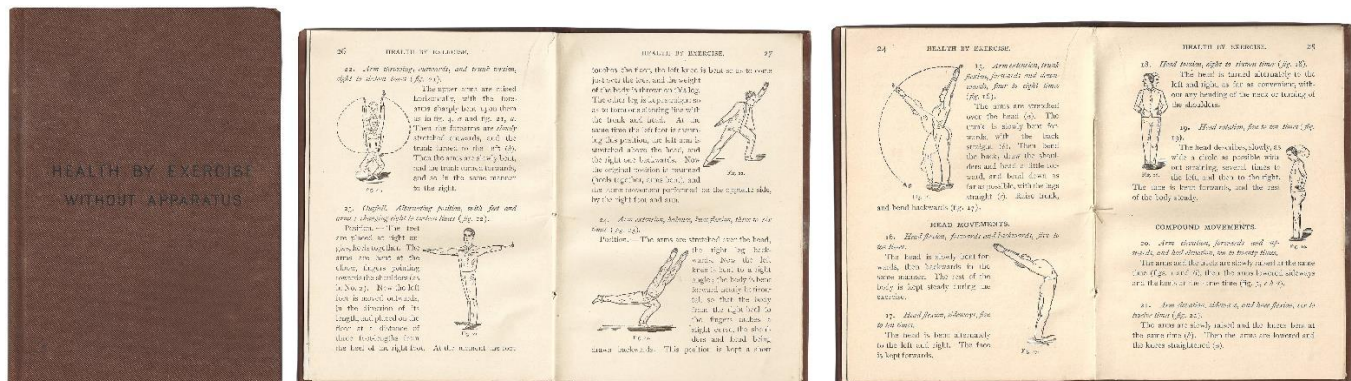 HEALTH BY EXERCISE
WITHOUT APPARATUS
26 HEALTH BY EXERCISE.
22. Arm throwing, outwards, and trunk torsion,
eight to sixteen times (fig. 21).
The upper arms are raised
horizontally, with the fore-
arms sharply bent upon them
as in fig. 4, a and fig. 21, a.
Then the forearms are slowly
stretched outwards, and the
trunk turned to the left (b).
Then the arms are slowly bent,
and the trunk turned forwards,
and so in the same manner
to the right.
23. Outfall. Alternating position, with feet and
arms changing eight to sixteen times (fig. 22).
Position.—The feet
are placed at right an-
gles, heels together. The
arms are bent at the
elbow, fingers pointing
towards the shoulders (as
in No. 2). Now the left
foot is moved outwards,
in the direction of its
length, and placed on the
floor at a distance of
three footlengths from
the heel of the right foot. At the moment the foot
HEALTH BY EXERCISE. 27
touches the floor, the left knee is bent so as to come
just over the toes, and the weight
of the body is thrown on this leg.
The other leg is kept straight so
as to form one slanting line with
the trunk and head. At the
same time the left foot is assum-
ing this position, the left arm is
stretched above the head, and
the right one backwards. Now
the original position is resumed
(heels together, arms bent), and
the same movement performed on the opposite side,
by the right foot and arm.
Fig. 22.
24. Arm extension, balance, knee flexion, three to six
times (fig. 23).
Position.—The arms are stretched over the head,
the right leg back-
wards. Now the left
knee is bent to a right
angle; the body is bent
forward nearly horizon-
tal, so that the body
from the right heel to
the fingers makes a
slight curve, the shoul-
ders and head being
drawn backwards. This position is kept a short
24 HEALTH BY EXERCISE.
15. Arm extension, trunk
flexion, forwards and down-
wards, four to eight
times (fig. 16).
The arms are stretched
over the head (a). The
trunk is slowly bent for-
wards, with the back
straight (b). Then bend
the back, draw the shoul-
ders and head a little for-
ward, and bend down as
far as possible, with the legs
straight (c). Raise trunk,
and bend backwards (fig. 17).
HEAD MOVEMENTS.
16. Head flexion, forwards and backwards, five to
ten times.
The head is slowly bent for-
wards, then backwards in the
same manner. The rest of the
body is kept steady during the
exercise.
17. Head flexion, sideways, five
to ten times.
The head is bent alternately
to the left and right. The face
is kept forwards.
HEALTH BY EXERCISE. 25
18. Head torsion, eight to sixteen times (fig. 18).
The head is turned alternately to the
left and right, as far as convenient, with-
out any bending of the neck or turning of
the shoulders.
19. Head rotation, five to ten times (fig.
19).
The head describes, slowly, as
wide a circle as possible with-
out straining, several times to
the left, and then to the right.
The face is kept forwards, and the rest
of the body steady.
COMPOUND MOVEMENTS.
20. Arm elevation, forwards and up-
wards, and heel elevation, ten to twenty times.
The arms and the heels are slowly raised at the same
time (figs. 1 and 6), then the arms lowered sideways
and the heels at the same time
21. Arm elevation, sideways, and knee flexion, six to
twelve times (fig. 20).
The arms are slowly raised and the knees bent at
the same time (b). Then the arms are lowered and
the knees straightened (a).